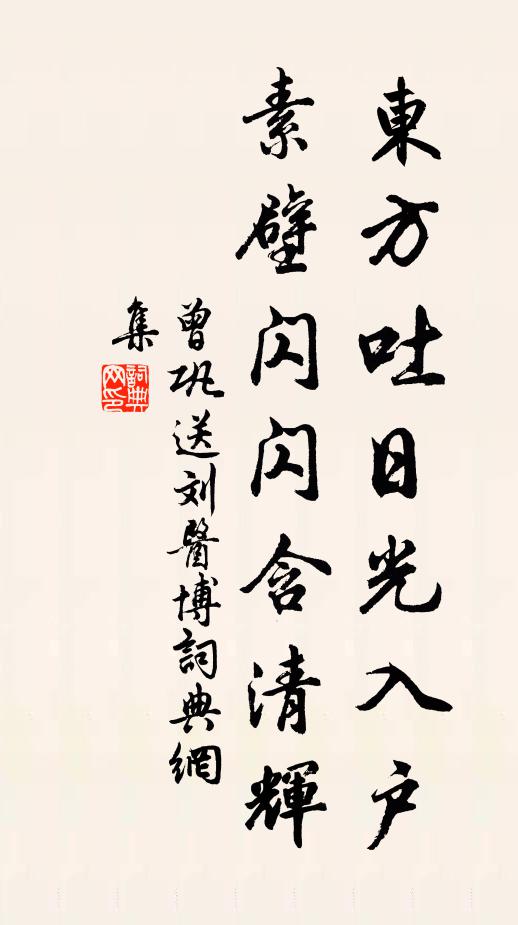 東方吐日光入户
素壁闪闪含清輝
曾巩送刘醫博詞典網
集
詞典网印